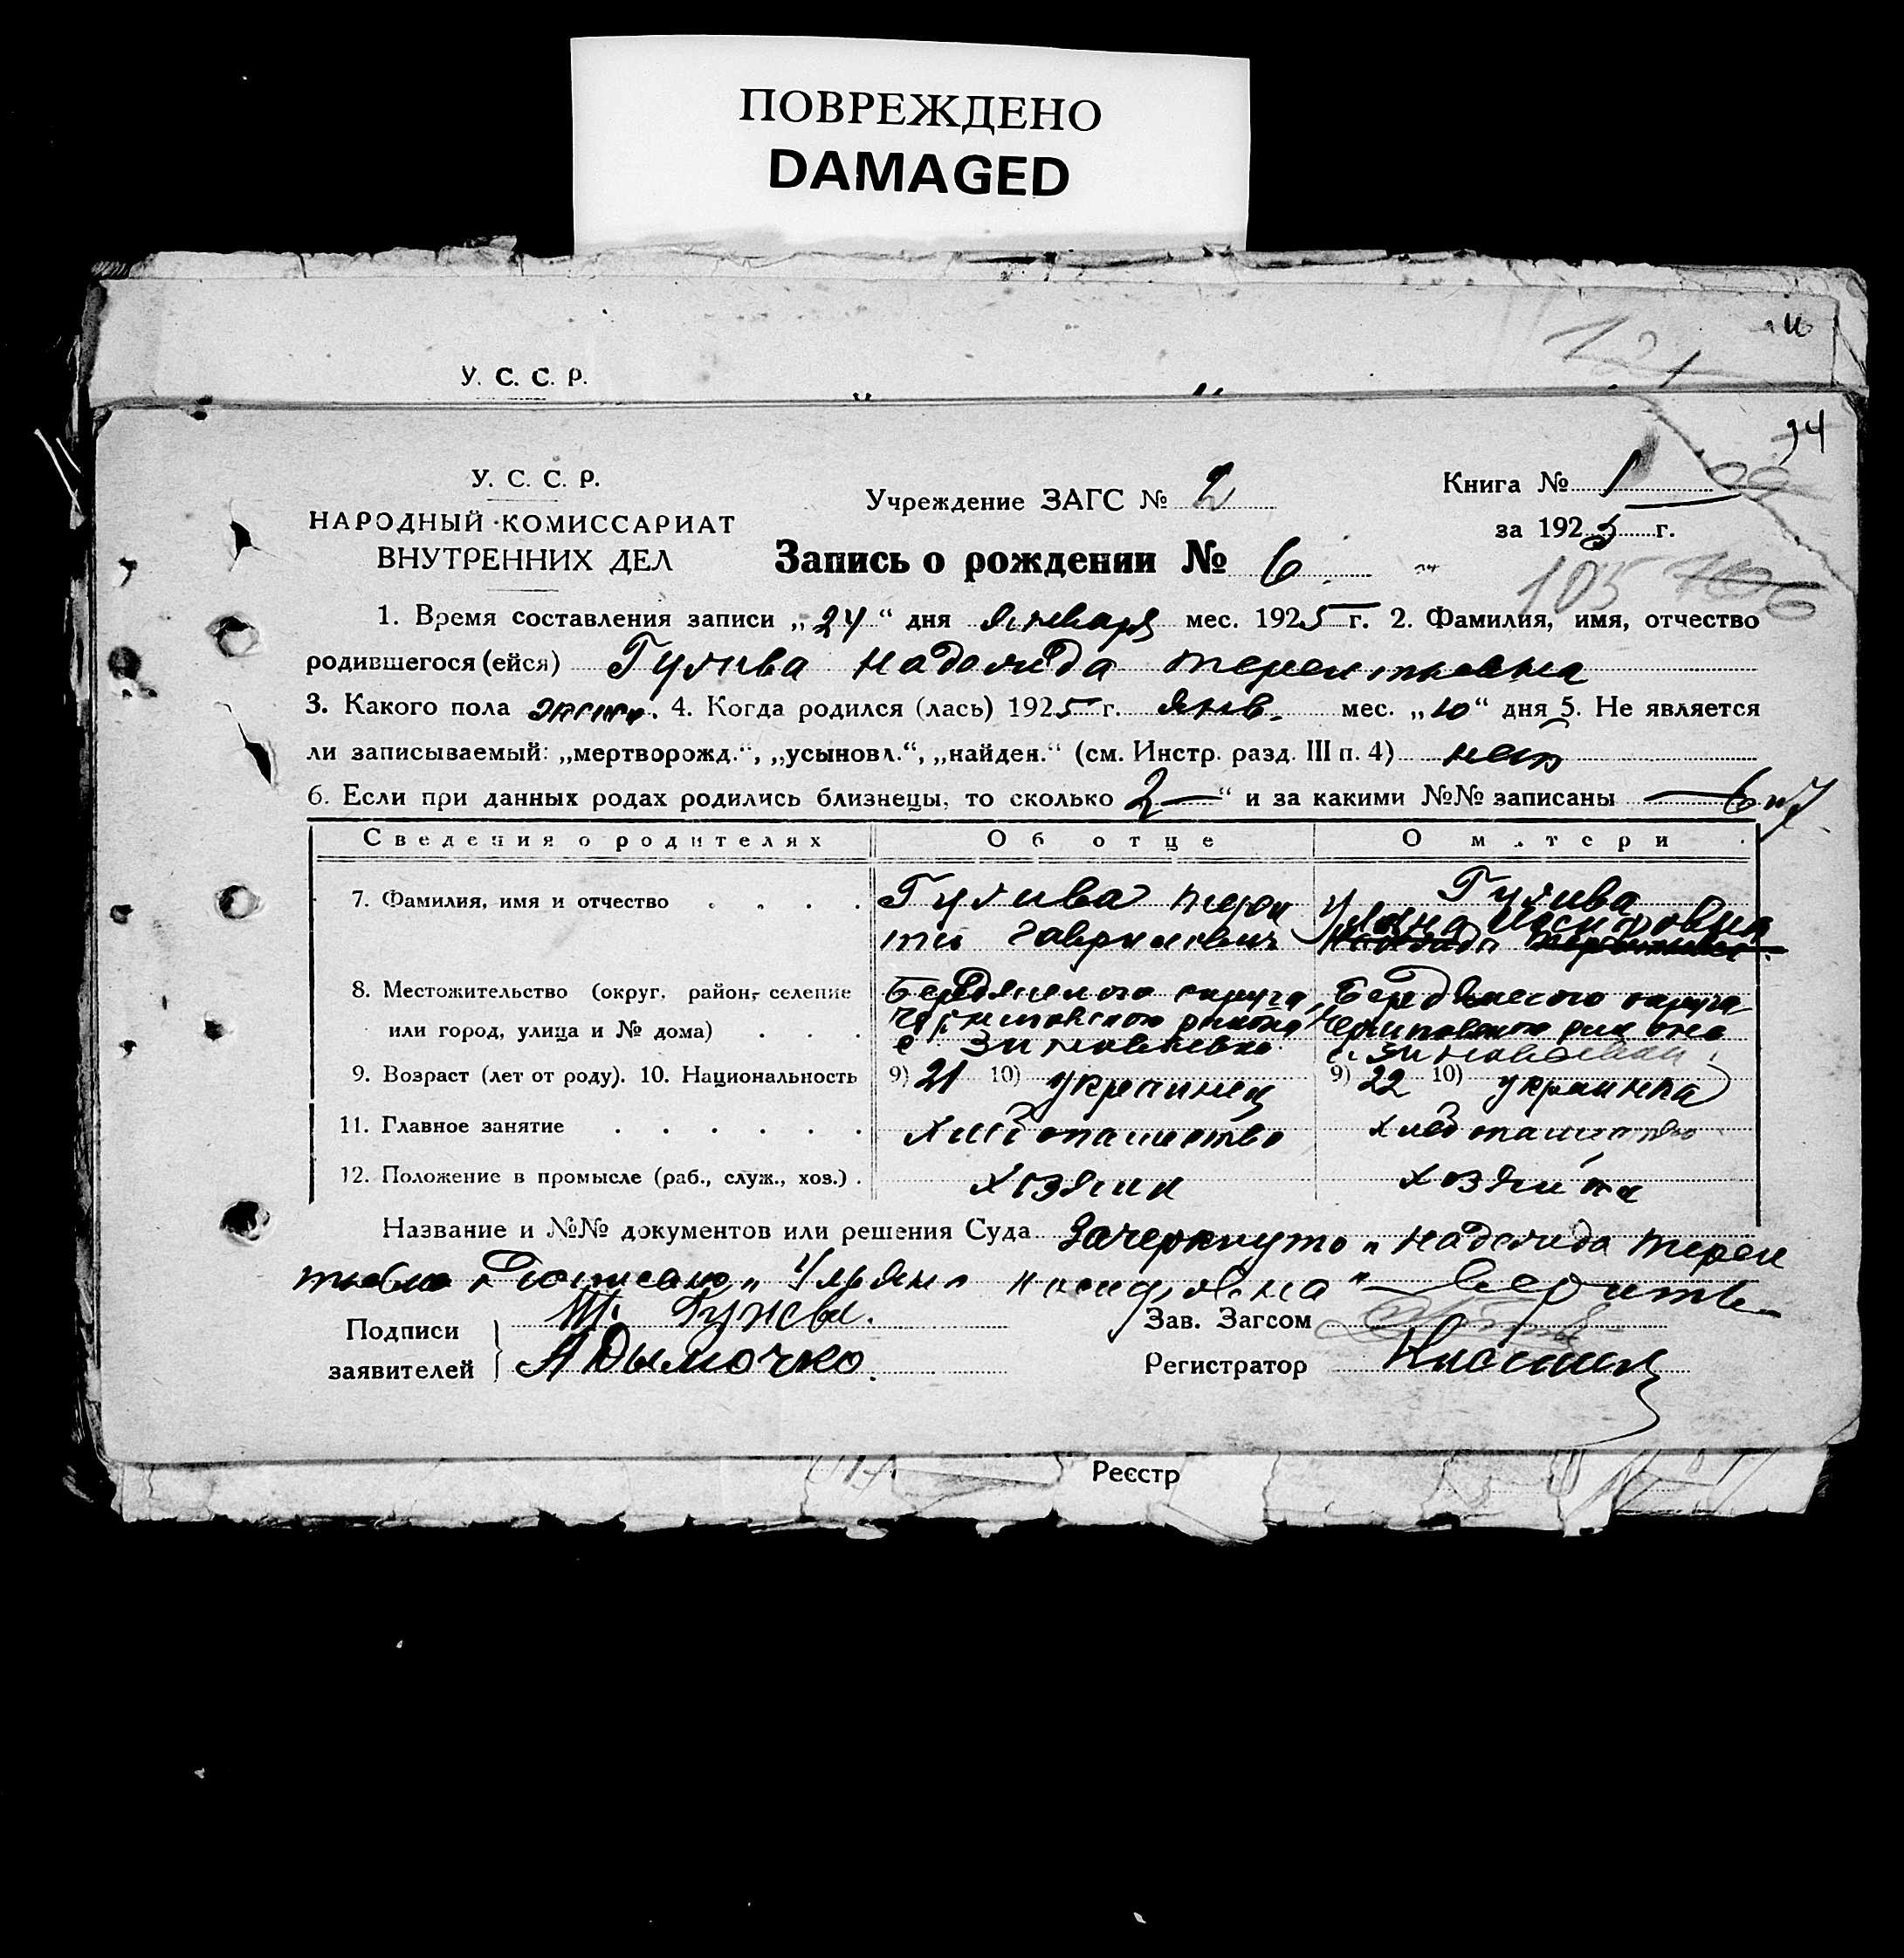 ПОВРЕЖДЕНО
DAMAGED
У. С. С. Р.
121
94
У. С. С. Р.
НАРОДНЫЙ КОМИССАРИАТ
ВНУТРЕННИХ ДЕЛ
Учреждение ЗАГС № 2
Книга № 1
за 1925 г.
Запись о рождении № 6
105 106
1. Время составления записи „24“ дня января мес. 1925 г. 2. Фамилия, имя, отчество
родившегося (ейся) Гужива Надежда Терентьевна
3. Какого пола женск. 4. Когда родился (лась) 1925 г. янв. мес. „10“ дня 5. Не является
ли записываемый: „мертворожд.“, „усыновл.“, „найден.“ (см. Инстр. разд. III п. 4) нет
6. Если при данных родах родились близнецы, то сколько 2 “ и за какими №№ записаны 6 и 7
Сведения о родителях Об отце О матери
7. Фамилия, имя и отчество Гужива Терен
тий Гаврилович
Гужива
Ульяна Иосифовна
Надежда Терентьевна
8. Местожительство (округ, район, селение
или город, улица и № дома)
Бердянского округа
района
с.
Бердянского округа
района
с.
9. Возраст (лет от роду). 10. Национальность 9) 21 10) украинец 9) 22 10) украинка
11. Главное занятие хлебопашество хлебопашество
12. Положение в промысле (раб., служ., хоз.) хозяин хозяйка
Название и №№ документов или решения Суда Зачеркнуто „Надежда Терен
тьевна“ „Ульяна Иосифовна“ верить
Подписи
заявителей
Т. Гужва.
А Дымочко.
Зав. Загсом
Регистратор
Реєстр